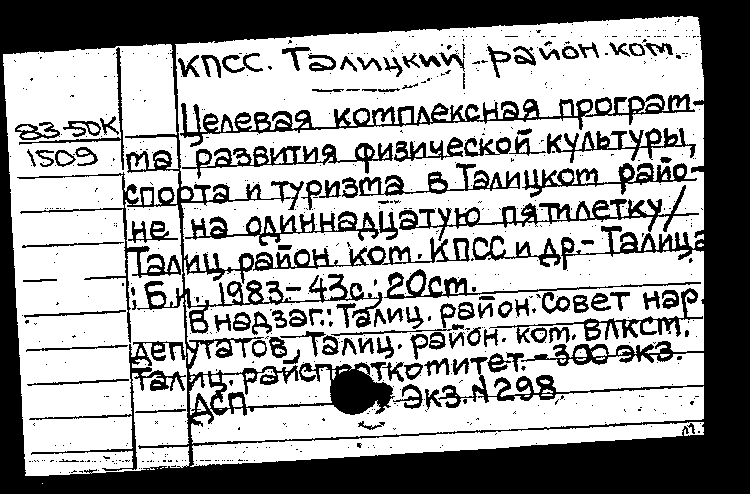 КПСС. Талицкий район.ком.
83-50К
1509
Целевая комплексная програм-
ма развития физической культуры,
спорта и туризма в Талицком райо-
не на одиннадцатую пятилетку/
Талиц.район.ком.КПСС и др.- Талица
: Б.и., 1983.- 43с.; 20см.
В надзаг.: Талиц.район.Совет нар.
депутатов, Талиц.район.ком.ВЛКСМ.
Талиц.райспорткомитет.-300 экз.
ДСП. Экз.N298